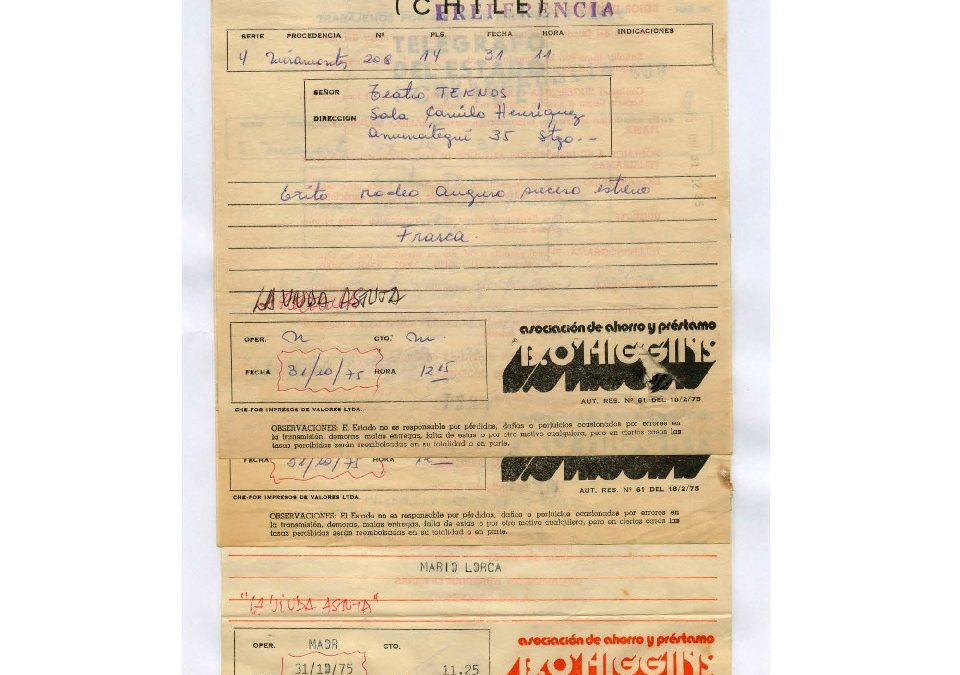 (CHILE)
PREFERENCIA
SERIE PROCEDENCIA Nº PLS. FECHA HORA INDICACIONES
4 Miramontes 208 14 31 11
SEÑOR Teatro TEKNOS
DIRECCION Sala Camilo Henríquez
Amunátegui 35 Stgo.--
Exito rodeo auguro suceso estreno
Frasca.
LA VIUDA ASTUTA
OPER. CTO.
FECHA 31/10/75 HORA 12 15
asociación de ahorro y préstamo
B.O'HIGGINS
AUT. RES. Nº 61 DEL 18/2/75
CHE-FOR IMPRESOS DE VALORES LTDA.
OBSERVACIONES: El Estado no es responsable por pérdidas, daños o perjuicios ocasionados por errores en
la transmisión, demoras, malas entregas, falta de estas o por otro motivo cualquiera, pero en ciertos casos las
tasas percibidas serán reembolsadas en su totalidad o en parte.
FECHA 31/10/75 HORA
AUT. RES. Nº 61 DEL 18/2/75
CHE-FOR IMPRESOS DE VALORES LTDA.
OBSERVACIONES: El Estado no es responsable por pérdidas, daños o perjuicios ocasionados por errores en
la transmisión, demoras, malas entregas, falta de estas o por otro motivo cualquiera, pero en ciertos casos las
tasas percibidas serán reembolsadas en su totalidad o en parte.
MARIO LORCA
"LA VIUDA ASTUTA"
OPER. MADR CTO.
31/10/75 11.25
asociación de ahorro y préstamo
B.O'HIGGINS